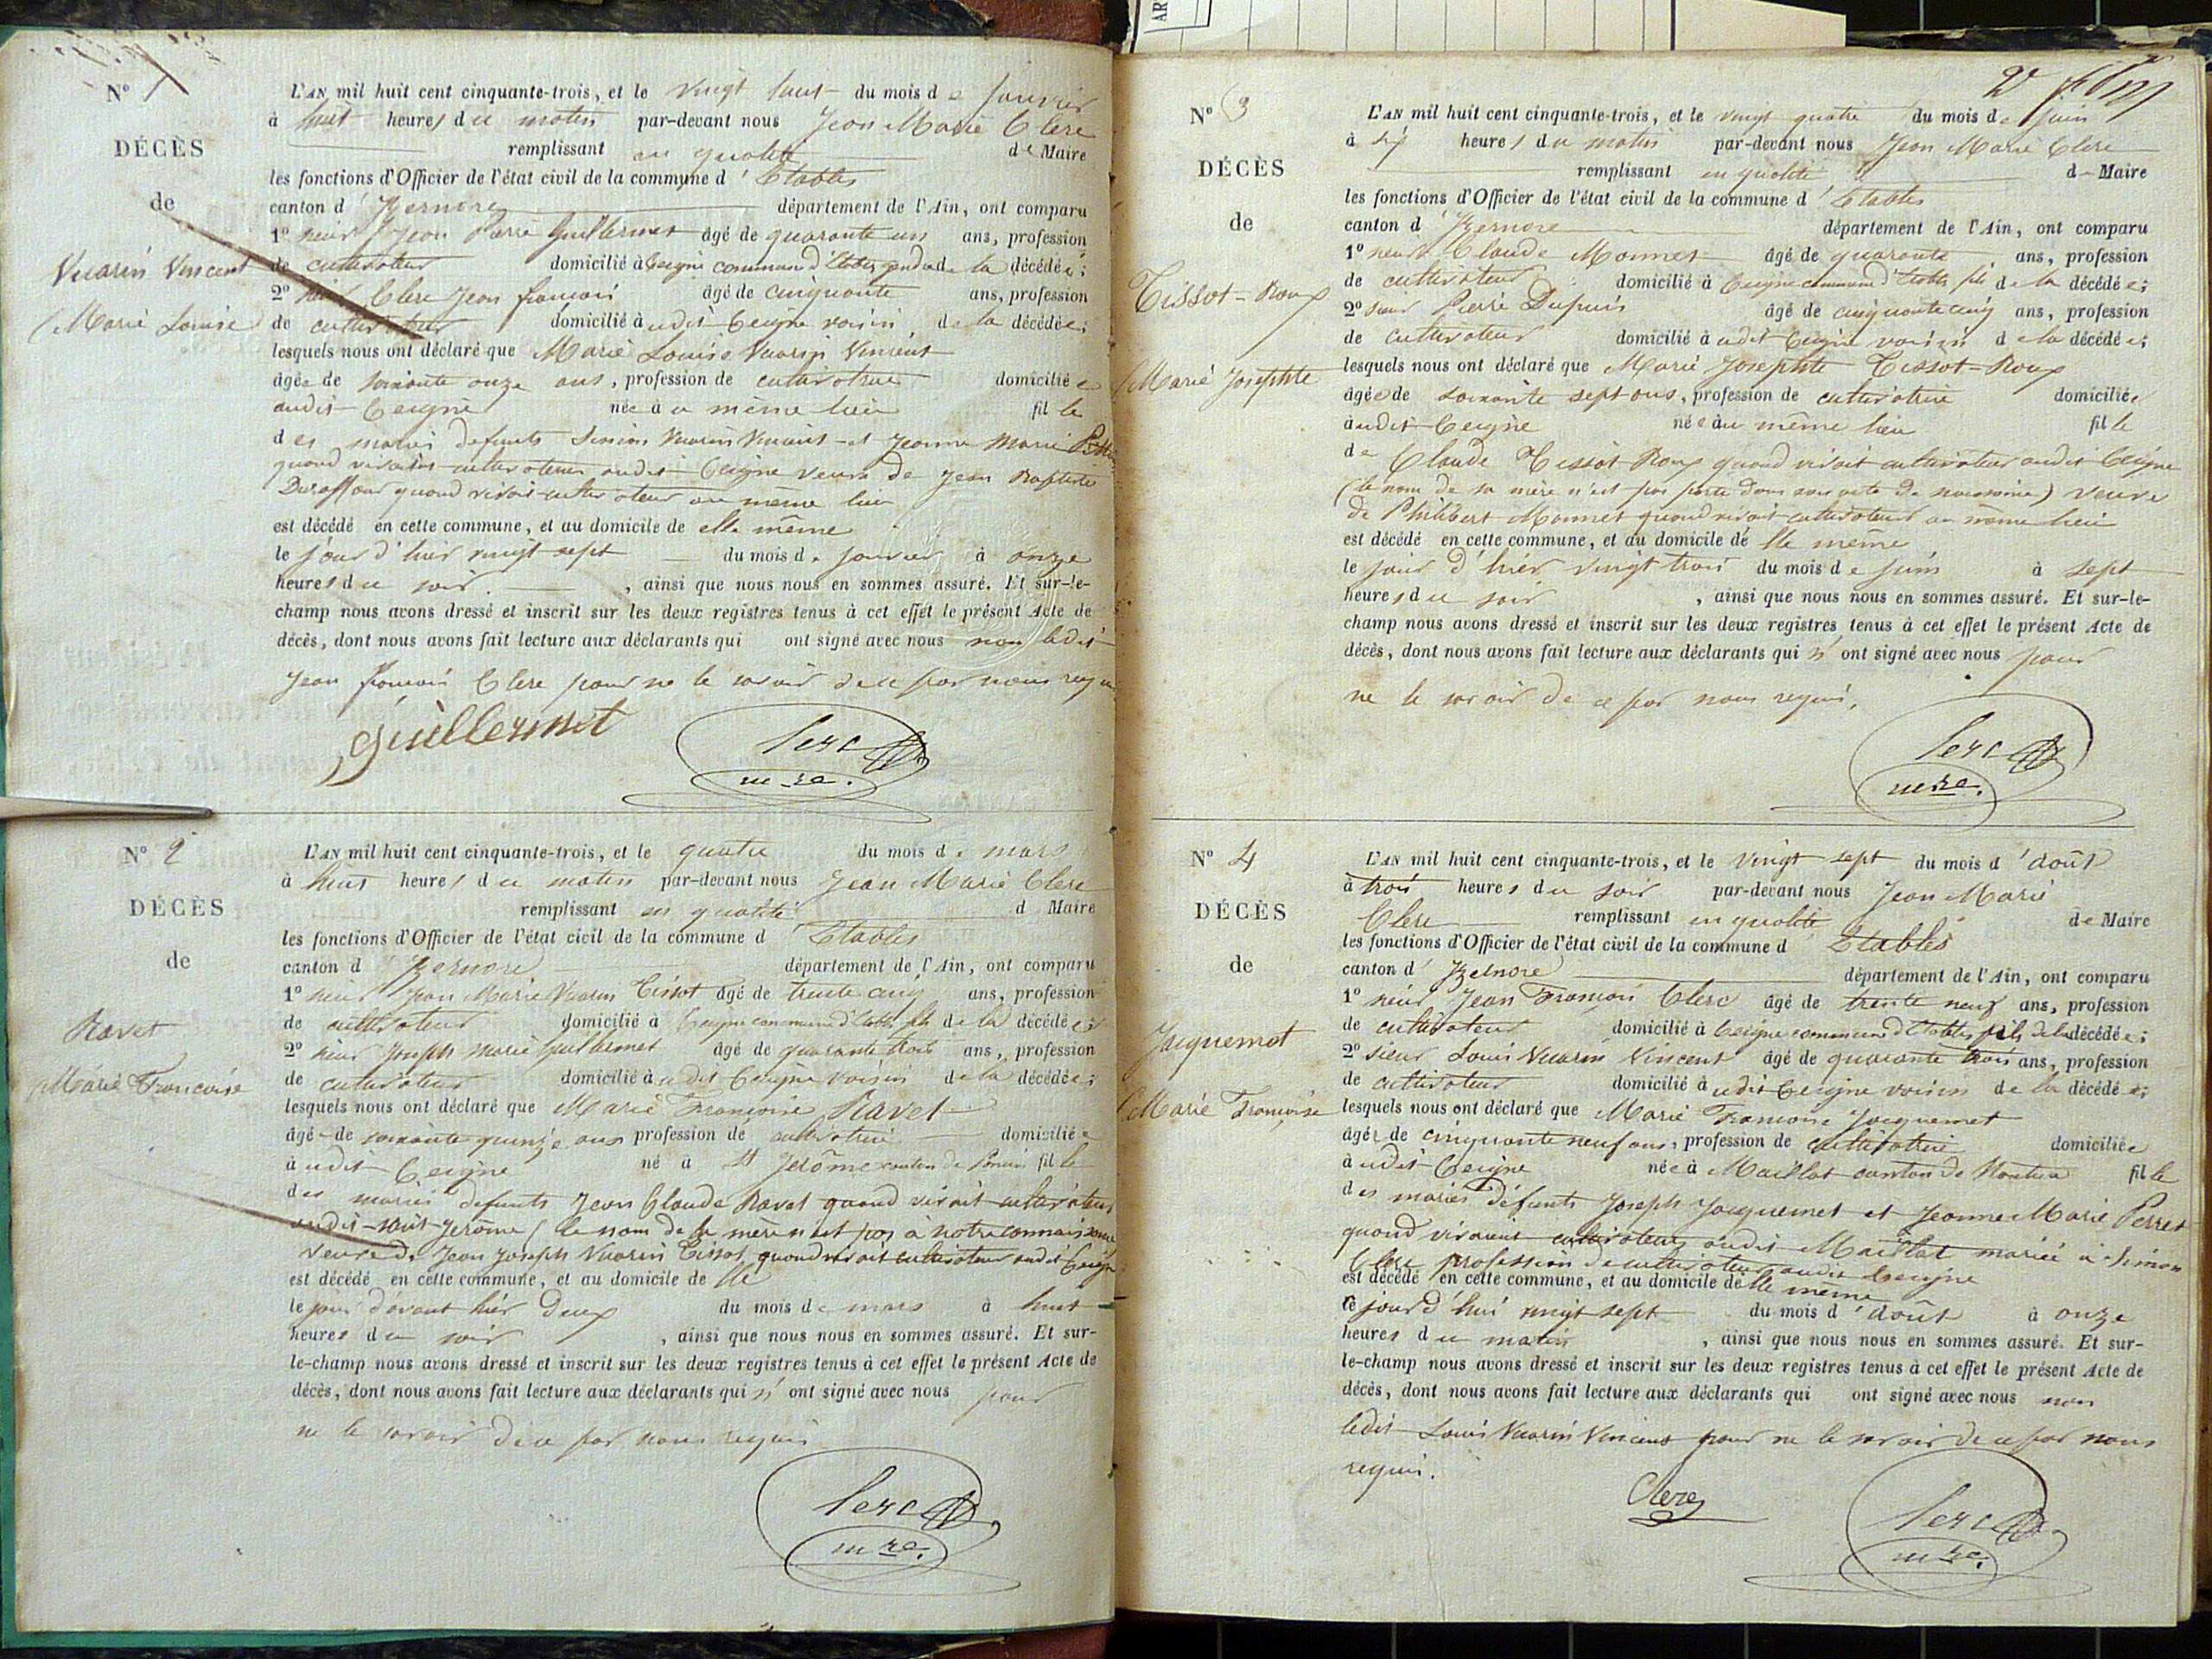 N° 1
DÉCÈS
de
Vuarin Vincent
Marie Louise
L'AN mil huit cent cinquante-trois, et le vingt huit du mois de janvier
à huit heures du matin par-devant nous Jean Marie Clerc
remplissant en qualité de Maire
les fonctions d'Officier de l'état civil de la commune d'Etables
canton d'Izernore département de l'Ain, ont comparu
1° sieur Jean Pierre Guillermet âgé de quarante un ans, profession
de cultivateur domicilié à Ceigne commune d'Etables gendre de la décédée;
2° sieur Clerc Jean françois âgé de cinquante ans, profession
de cultivateur domicilié à udit Ceigne voisin de la décédée;
lesquels nous ont déclaré que Marie Louise Vuarin Vincent
âgée de soixante onze ans, profession de cultivatrice domiciliée
audit Ceigne née à u même lieu fille
des mariés defunts Simon Vuarin Vincent et Jeanne Marie
quand vivaient cultivateurs audit Ceigne veuve de Jean Baptiste
Duraffour quand vivait cultivateur au même lieu
est décédé en cette commune, et au domicile de elle même
le jour d'hier vingt sept du mois de janvier à onze
heures du soir, ainsi que nous nous en sommes assuré. Et sur-le-
champ nous avons dressé et inscrit sur les deux registres tenus à cet effet le présent Acte de
décès, dont nous avons fait lecture aux déclarants qui ont signé avec nous non ledit
Jean françois Clerc pour ne le savoir de ce par nous requis
guillermet
Clerc
mre.
N° 2
DÉCÈS
de
Ravet
Marie Françoise
L'AN mil huit cent cinquante-trois, et le quatre du mois de mars
à huit heures du matin par-devant nous Jean Marie Clerc
remplissant en qualité d Maire
les fonctions d'Officier de l'état civil de la commune d'Etables
canton d'Izernore département de l'Ain, ont comparu
1° sieur Jean Marie Vuarin Tissot âgé de trente cinq ans, profession
de cultivateur domicilié à Ceigne commune d'Etables fils de la décédée;
2° sieur Joseph Marie Guillermet âgé de quarante trois ans, profession
de cultivateur domicilié à udit Ceigne voisin de la décédée;
lesquels nous ont déclaré que Marie Françoise Ravet
âgée de soixante quinze ans profession de cultivatrice domiciliée
à udit Ceigne né à St Jerôme canton de Poncin fille
des mariés defunts Jean Claude Ravet quand vivait cultivateur
audit saint Jerôme (le nom de la mère n'est pas à notre connaissance
veuve de Jean Joseph Vuarin Tissot, quand vivait cultivateur audit Ceigne
est décédé en cette commune, et au domicile de elle
le jour d'avant hier deux du mois de mars à huit
heures du soir, ainsi que nous nous en sommes assuré. Et sur-
le-champ nous avons dressé et inscrit sur les deux registres tenus à cet effet le présent Acte de
décès, dont nous avons fait lecture aux déclarants qui n'ont signé avec nous pour
ne le savoir de ce par nous requis
Clerc
mre.
N° 3
DÉCÈS
de
Tissot-Roux
Marie Josephte
L'AN mil huit cent cinquante-trois, et le vingt quatre du mois de juin
à six heures du matin par-devant nous Jean Marie Clerc
remplissant en qualité d Maire
les fonctions d'Officier de l'état civil de la commune d'Etables
canton d'Izernore département de l'Ain, ont comparu
1° sieur Claude Monnet âgé de quarante ans, profession
de cultivateur domicilié à Ceigne commune d'Etables fils de la décédée;
2° sieur Pierre Dupuis âgé de cinquante cinq ans, profession
de cultivateur domicilié à udit Ceigne voisin de la décédée;
lesquels nous ont déclaré que Marie Josephte Tissot-Roux
âgée de soixante sept ans, profession de cultivatrice domiciliée
à udit Ceigne née àu même lieu fille
de Claude Tissot Roux quand vivait cultivateur audit Ceigne
(le nom de sa mère n'est pas porté dans son acte de naissance) veuve
de Philibert Monnet quand vivait cultivateur au même lieu
est décédé en cette commune, et au domicile de elle même
le jour d'hier vingt trois du mois de juin à sept
heures du soir, ainsi que nous nous en sommes assuré. Et sur-le-
champ nous avons dressé et inscrit sur les deux registres tenus à cet effet le présent Acte de
décès, dont nous avons fait lecture aux déclarants qui n'ont signé avec nous pour
ne le savoir de ce par nous requis,
Clerc
mre.
N° 4
DÉCÈS
de
Jacquemet
Marie Françoise
L'AN mil huit cent cinquante-trois, et le vingt sept du mois d'août
à trois heures du soir par-devant nous Jean Marie
Clerc remplissant en qualité de Maire
les fonctions d'Officier de l'état civil de la commune d'Etables
canton d'Izernore département de l'Ain, ont comparu
1° sieur Jean François Clerc âgé de trente neuf ans, profession
de cultivateur domicilié à Ceigne commune d'Etables fils de la décédée;
2° sieur Louis Vuarin Vincent âgé de quarante trois ans, profession
de cultivateur domicilié à udit Ceigne voisin de la décédée;
lesquels nous ont déclaré que Marie Françoise Jacquemet
âgée de cinquante neuf ans, profession de cultivatrice domiciliée
à udit Ceigne née à Maillat canton de Nantua fille
des mariés défunts Joseph Jacquemet et Jeanne Marie Perret
quand vivaient cultivateurs audit Maillat mariée à Simon
Clerc profession de cultivateur audit Ceigne
est décédé en cette commune, et au domicile de elle même
le jour d'hui vingt sept du mois d'août à onze
heures du matin, ainsi que nous nous en sommes assuré. Et sur-
le-champ nous avons dressé et inscrit sur les deux registres tenus à cet effet le présent Acte de
décès, dont nous avons fait lecture aux déclarants qui ont signé avec nous non
ledit Louis Vuarin Vincent pour ne le savoir de ce par nous
requis.
Clerc
Clerc
mre.